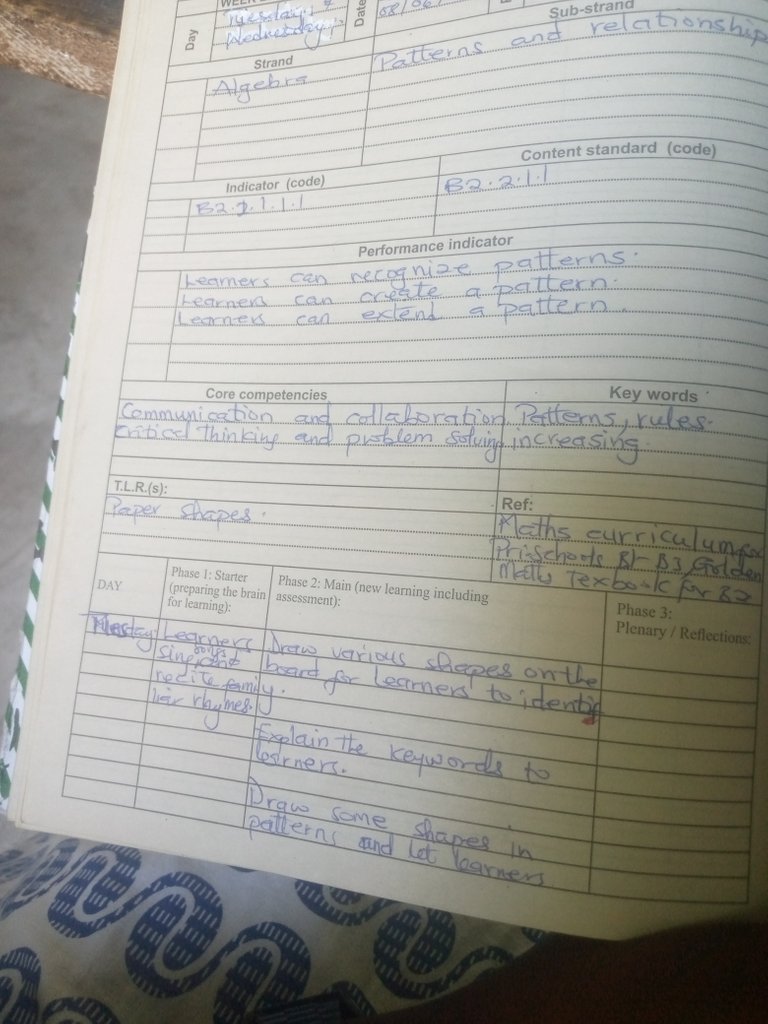 WEEK
Day
Tuesday,
Wednesday,
Date
08/06/
Strand
Sub-strand
Algebra
Patterns and relationship
Indicator (code)
Content standard (code)
B2.2.1.1.1
B2.2.1.1
Performance indicator
Learners can recognize patterns.
Learners can create a pattern.
Learners can extend a pattern.
Core competencies
Key words
Communication and collaboration
Critical thinking and problem solving
Patterns, rules.
increasing.
T.L.R.(s):
Paper shapes.
Ref:
Maths curriculum for
Pri.Schools B1- B3, Golden
Maths Texbook for B2
DAY
Phase 1: Starter
(preparing the brain
for learning):
Phase 2: Main (new learning including
assessment):
Phase 3:
Plenary / Reflections:
Tuesday
Learners
sing songs and
recite family
rhymes.
Draw various shapes on the
board for learners to identify
Explain the keywords to
learners.
Draw some shapes in
patterns and let learners